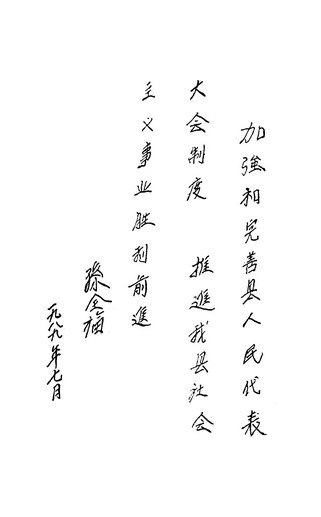 加強和完善县人民代表
大会制度 推進我县社会
主义事业胜利前進
孫全福
一九八九年七月